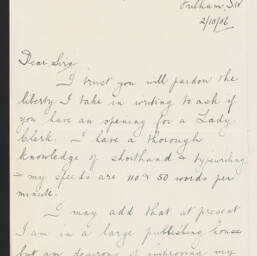 Fulham, SW
2/10/06
Dear Sirs
I trust you will pardon the
liberty I take in writing to ask if
you have an opening for a Lady
Clerk. I have a thorough
knowledge of shorthand & typewriting
& my speeds are 110 & 50 words per
minute.
I may add that at present
I am in a large publishing house
but am desirous of improving my